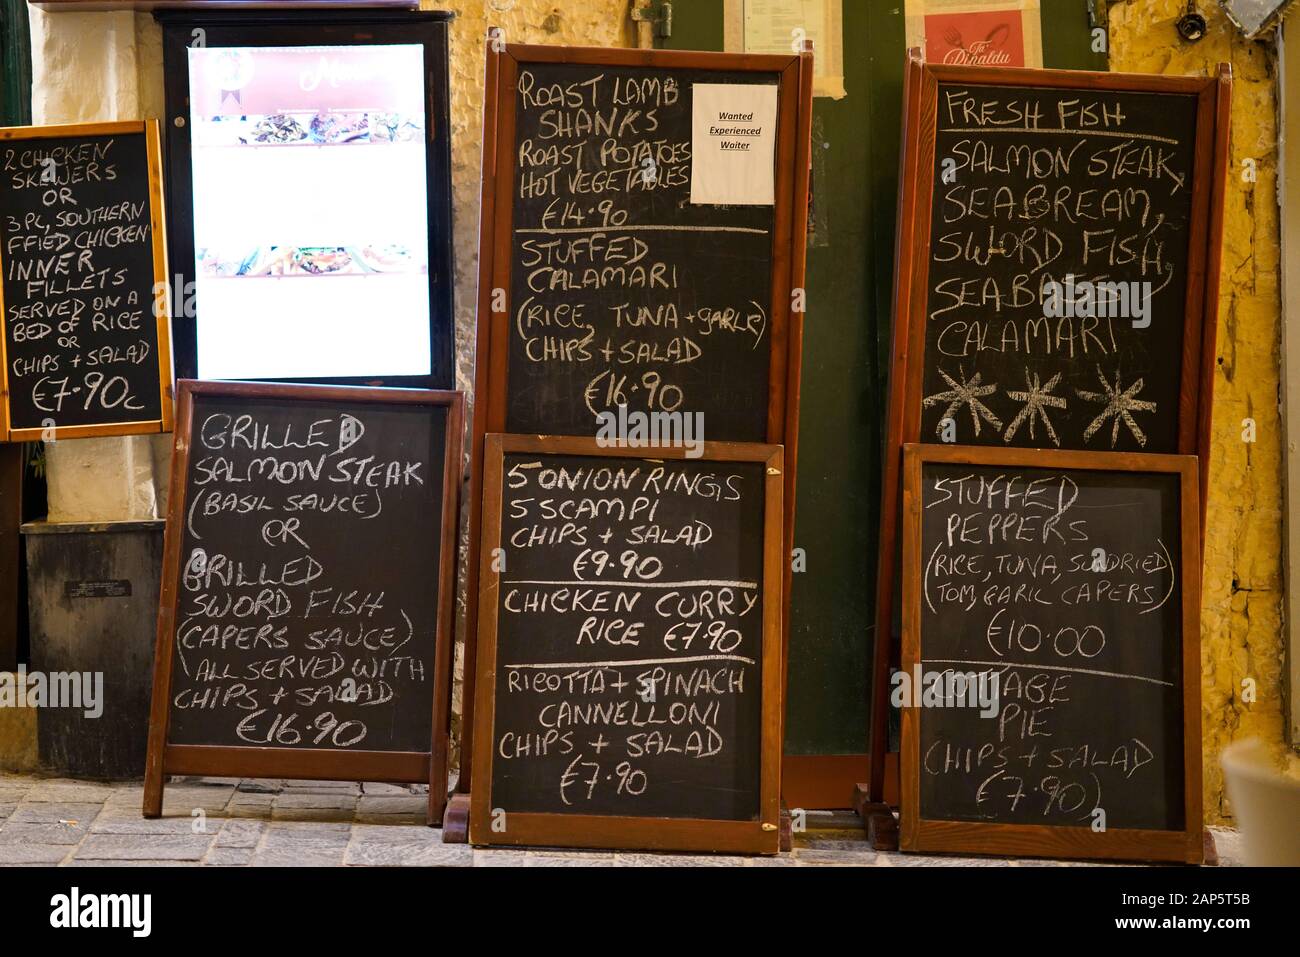 2 CHICKEN
SKEWERS
OR
3 PC, SOUTHERN
FFIED CHICKEN
INNER
FILLETS
SERVED ON A
BED OF RICE
OR
CHIPS + SALAD
€7.90c
Menu
GRILLED
SALMON STEAK
(BASIL SAUCE)
OR
GRILLED
SWORD FISH
(CAPERS SAUCE)
ALL SERVED WITH
CHIPS + SALAD
€16.90
ROAST LAMB
SHANKS
ROAST POTATOES
HOT VEGETABLES
€14.90
Wanted
Experienced
Waiter
STUFFED
CALAMARI
(RICE, TUNA + GARLIC)
CHIPS + SALAD
€16.90
5 ONION RINGS
5 SCAMPI
CHIPS + SALAD
€9.90
CHICKEN CURRY
RICE €7.90
RICOTTA + SPINACH
CANNELLONI
CHIPS + SALAD
€7.90
Ta'
Dinaldu
FRESH FISH
SALMON STEAK,
SEABREAM,
SWORD FISH,
SEABASS
CALAMARI
STUFFED
PEPPERS
(RICE, TUNA, SUNDRIED
TOM, GARIC CAPERS)
€10.00
COTTAGE
PIE
CHIPS + SALAD
€7.90)
alamy
Image ID: 2AP5T5B
www.alamy.com